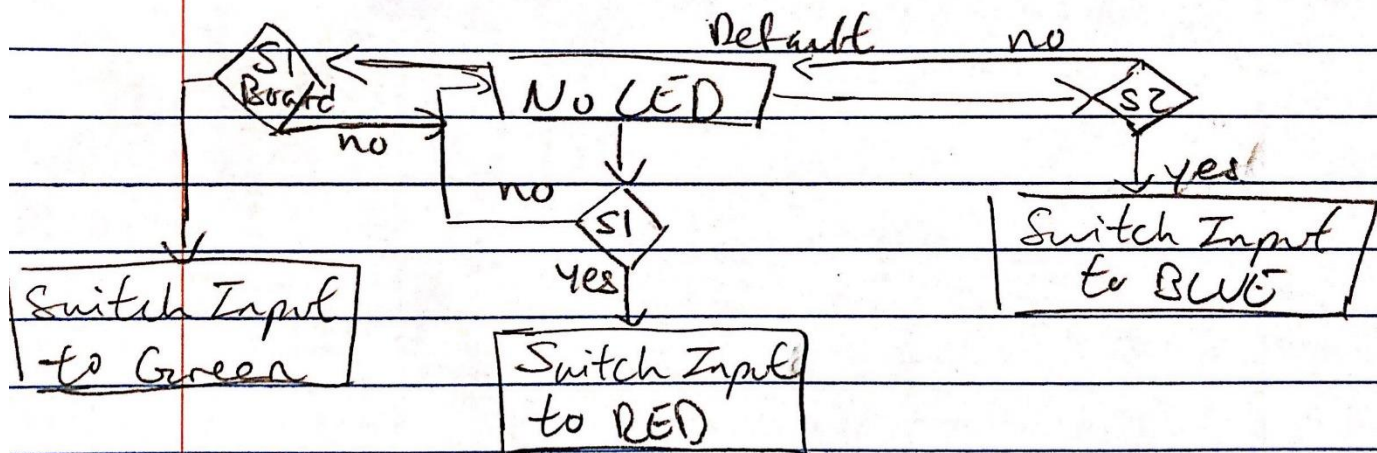 Default
no
S1
Board
No LED
S2
no
yes
no
S1
Switch Input
to BLUE
yes
Switch Input
to Green
Switch Input
to RED